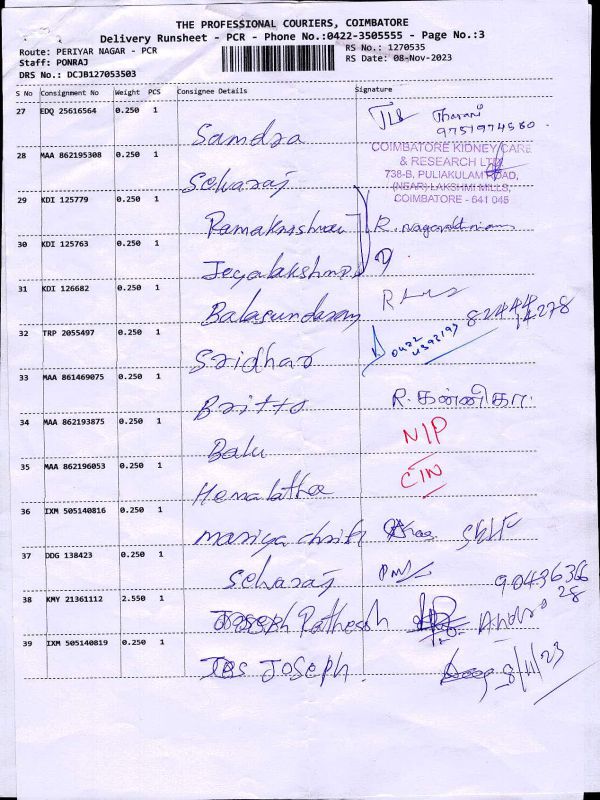 THE PROFESSIONAL COURIERS, COIMBATORE
Delivery Runsheet - PCR - Phone No.:0422-3505555 - Page No.:3
Route: PERIYAR NAGAR - PCR
RS No.: 1270535
Staff: PONRAJ
RS Date: 08-Nov-2023
DRS No.: DCJB127053503
S No Consignment No Weight PCS Consignee Details Signature
27 EDQ 25616564 0.250 1
Tharani
9751974580
Samdra
28 MAA 862195308 0.250 1
COIMBATORE KIDNEY CARE
& RESEARCH LTD
738-B, PULIAKULAM ROAD,
(NEAR) LAKSHMI MILLS,
COIMBATORE - 641 045
Selvaraj
29 KDI 125779 0.250 1
Ramakrishnan
30 KDI 125763 0.250 1
Jeyalakshmi
31 KDI 126682 0.250 1
Balasundaram
82444
14278
32 TRP 2055497 0.250 1
Sridhar
0422
4393193
33 MAA 861469075 0.250 1
Britto R. கண்ணிகா
34 MAA 862193875 0.250 1
Balu NIP
35 MAA 862196053 0.250 1
Hemalatha CIN
36 IXM 505140816 0.250 1
Mariya christi
37 DDG 138423 0.250 1
Selvaraj
9043636628
38 KMY 21361112 2.550 1
Joseph Rathesh
39 IXM 505140819 0.250 1
Jes Joseph 8/11/23